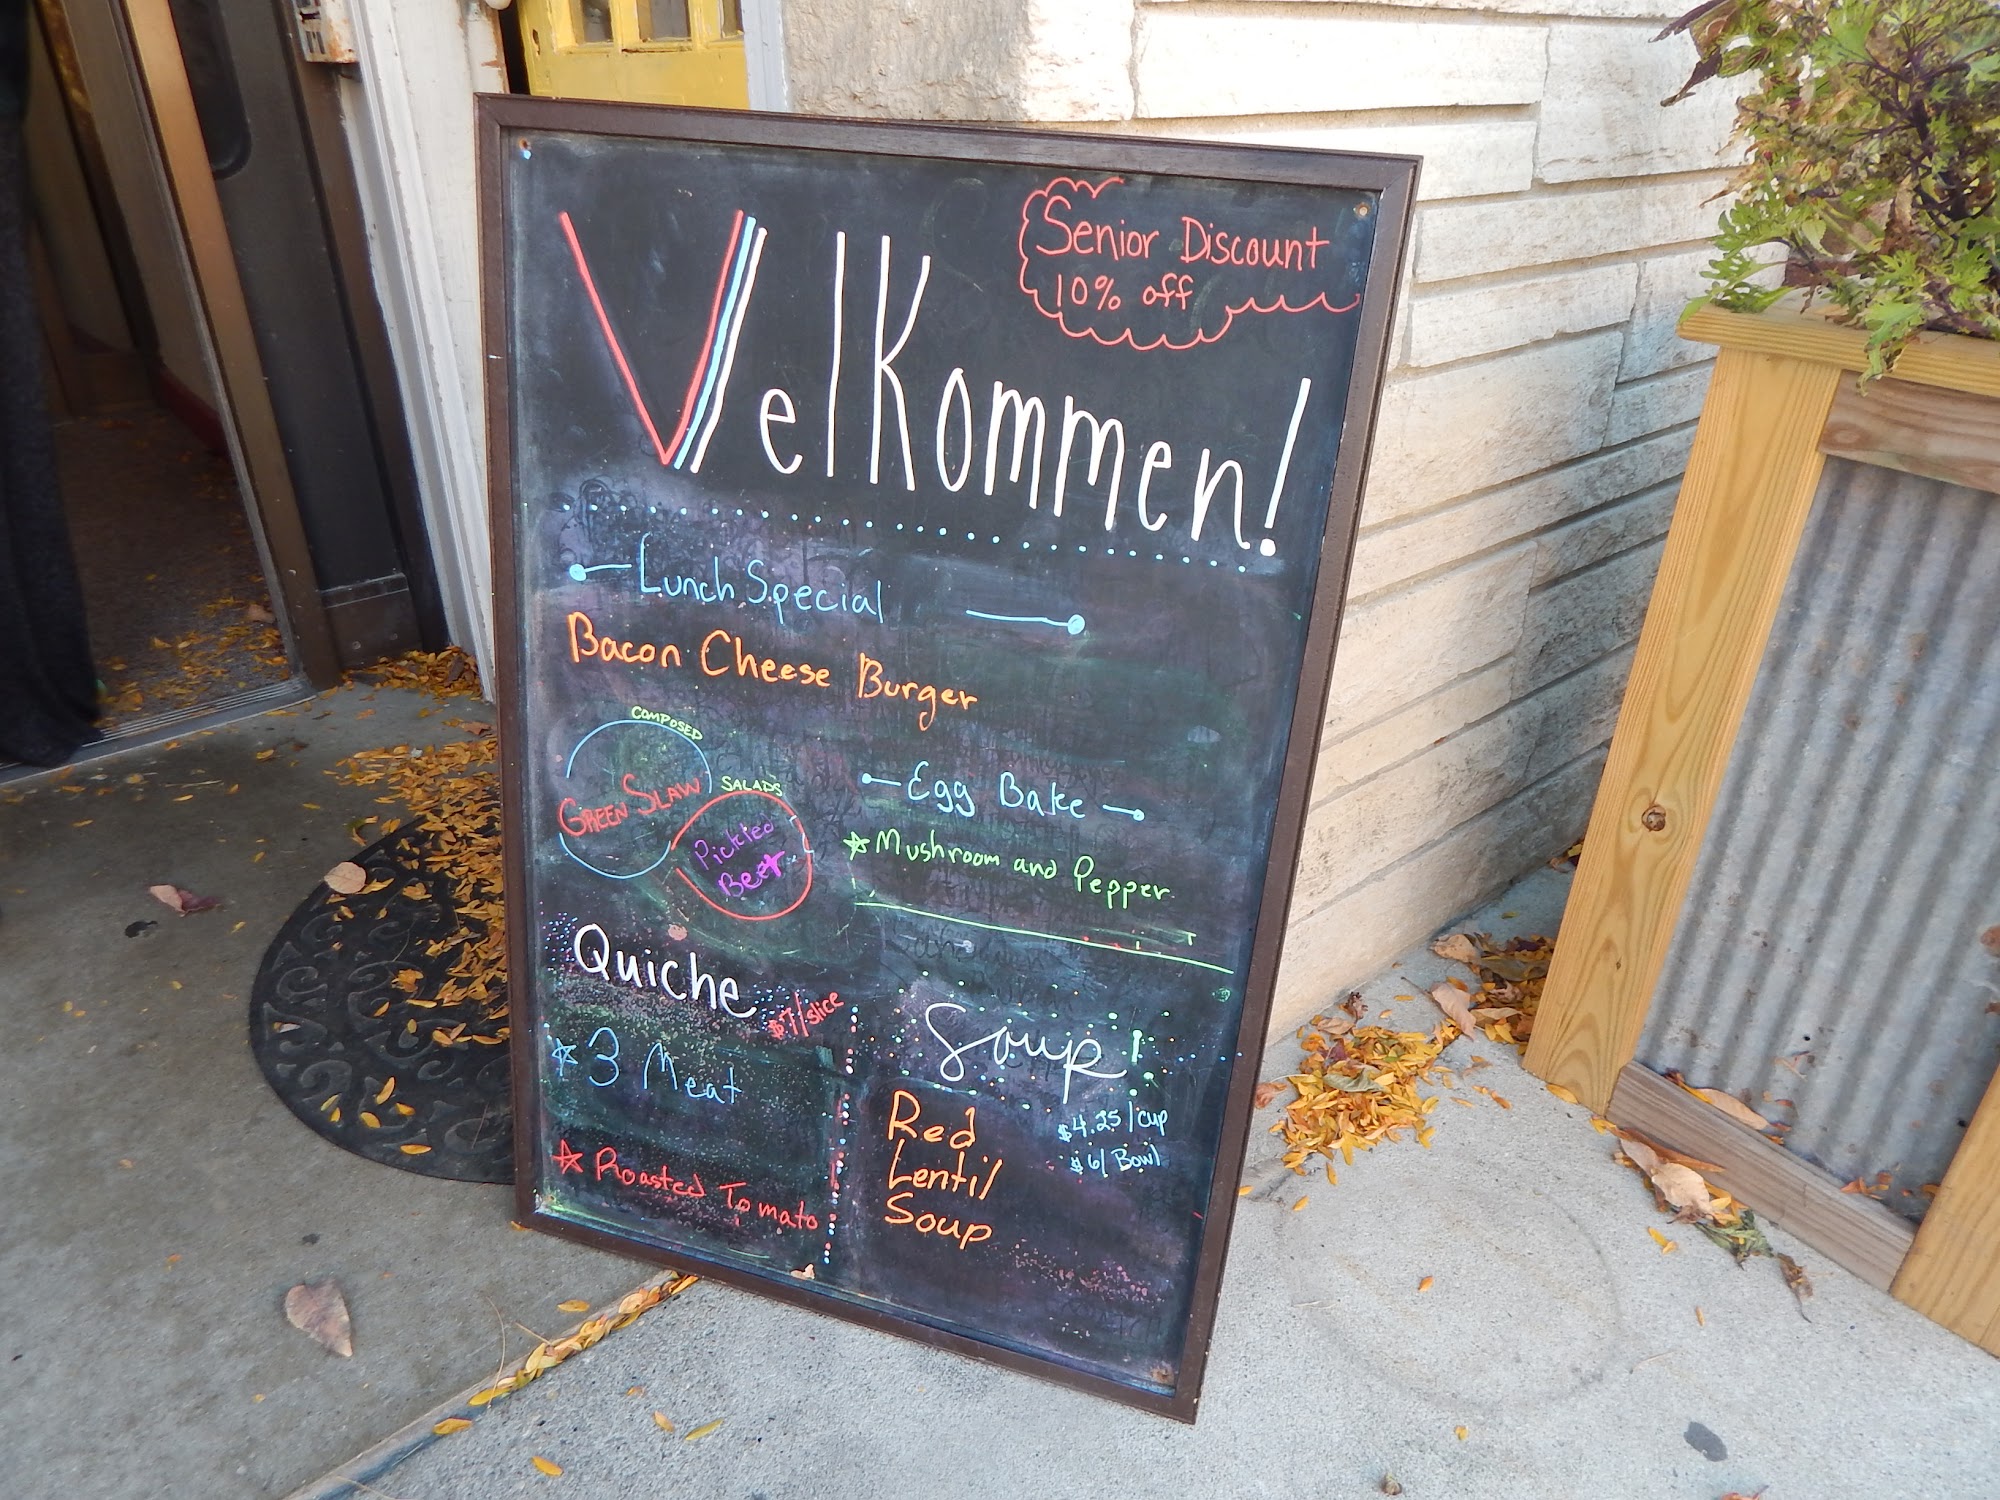 Senior Discount
10% off
Velkommen!
Lunch Special
Bacon Cheese Burger
COMPOSED
SALADS
GREEN SLAW
Pickled
Beet
Egg Bake
Mushroom and Pepper
Quiche
$7/slice
3 Meat
Roasted Tomato
Soup
$4.25/cup
$6/Bowl
Red
Lentil
Soup